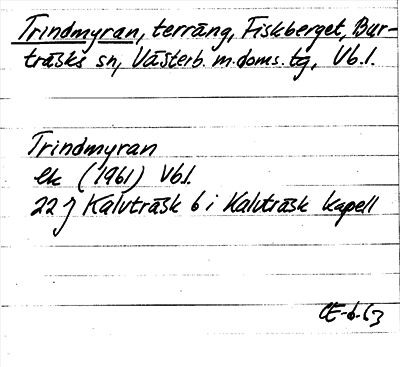 Trindmyran, terräng, Fiskberget, Bur-
träsks sn, Västerb. m. doms. tg, Vb.l.
Trindmyran
ek (1961) Vb.l.
22 J Kalvträsk 6 i Kalvträsk kapell
CE-6-63